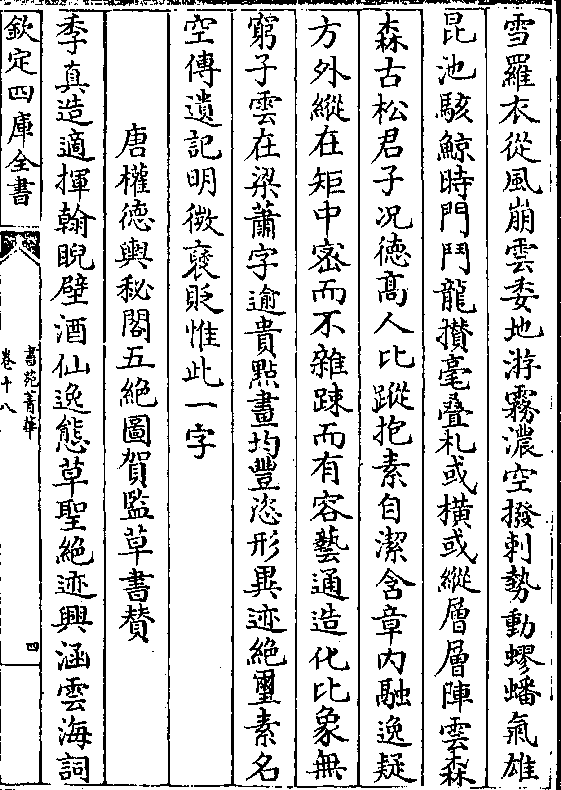 雪羅衣從風崩雲委地游霧濃空撥剌勢動蟉蟠氣雄
昆池駭鯨時門鬥龍攅毫疊札或横或縱層層陣雲森
森古松君子况德髙人比蹤抱素自潔含章内融逸疑
方外縱在矩中宻而不雜踈而有容藝通造化比象無
窮子雲在梁蕭字逾貴點畫均豐恣形異迹絶璽素名
空傳遺記明徴襃貶惟此一字
唐權德輿秘閣五絶圖賀監草書賛
季真造適揮翰睨壁酒仙逸態草聖絶迹興涵雲海詞
欽定四庫全書
書苑菁華
卷十八
四